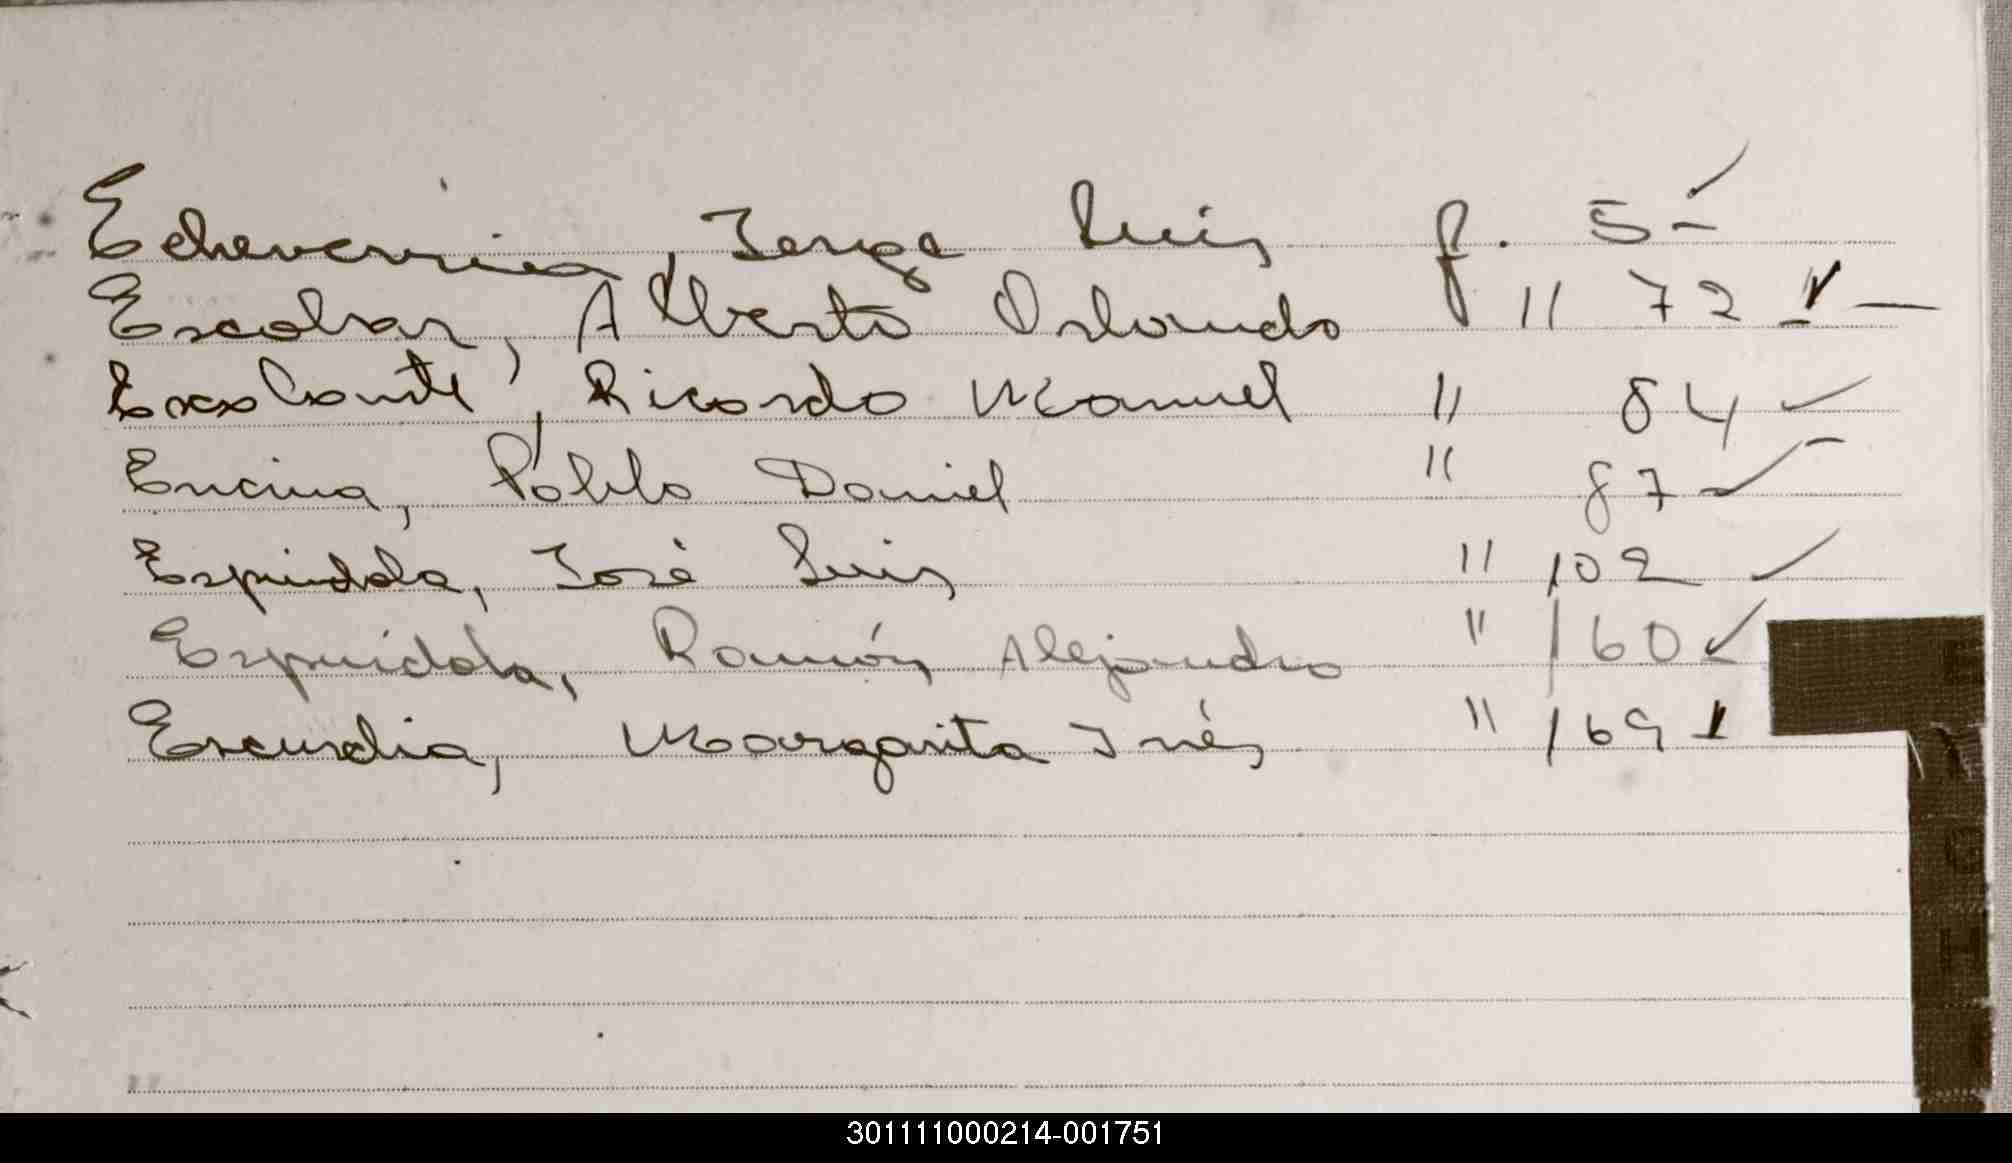 Echeverria, Jorge Luis f. 5 ✓
Escobar, Alberto Orlando f " 72 ✓
Escalante, Ricardo Manuel " 84 ✓
Encina, Pablo Daniel " 87 ✓
Espindola, José Luis " 102 ✓
Espindola, Ramón Alejandro " 160 ✓
Escurdia, Margarita Inés " 169
E
G
H
I
301111000214-001751